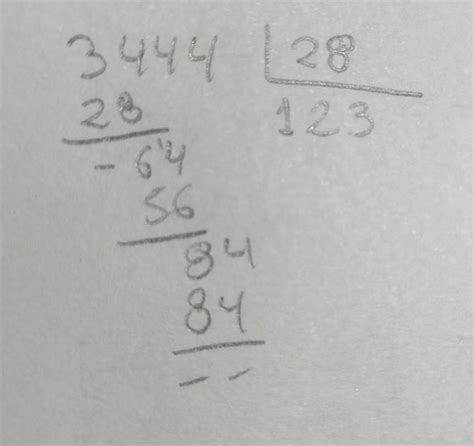 3444 28
28 123
- 64
56
84
84
- -